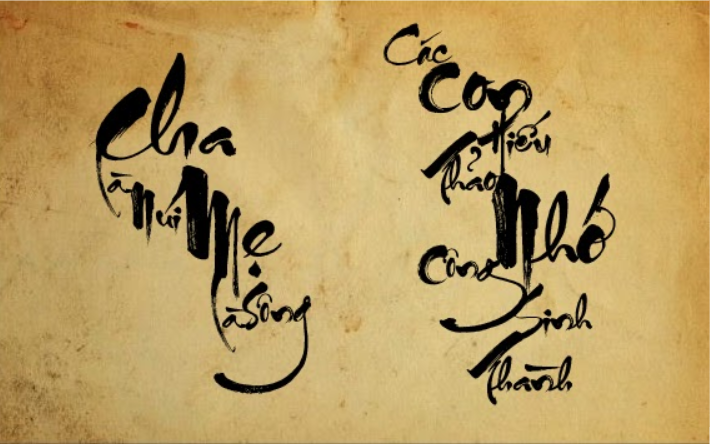 Cha
là Núi
Mẹ
là Sông
Các
Con
Hiếu
Thảo
Nhớ
Công
Sinh
Thành